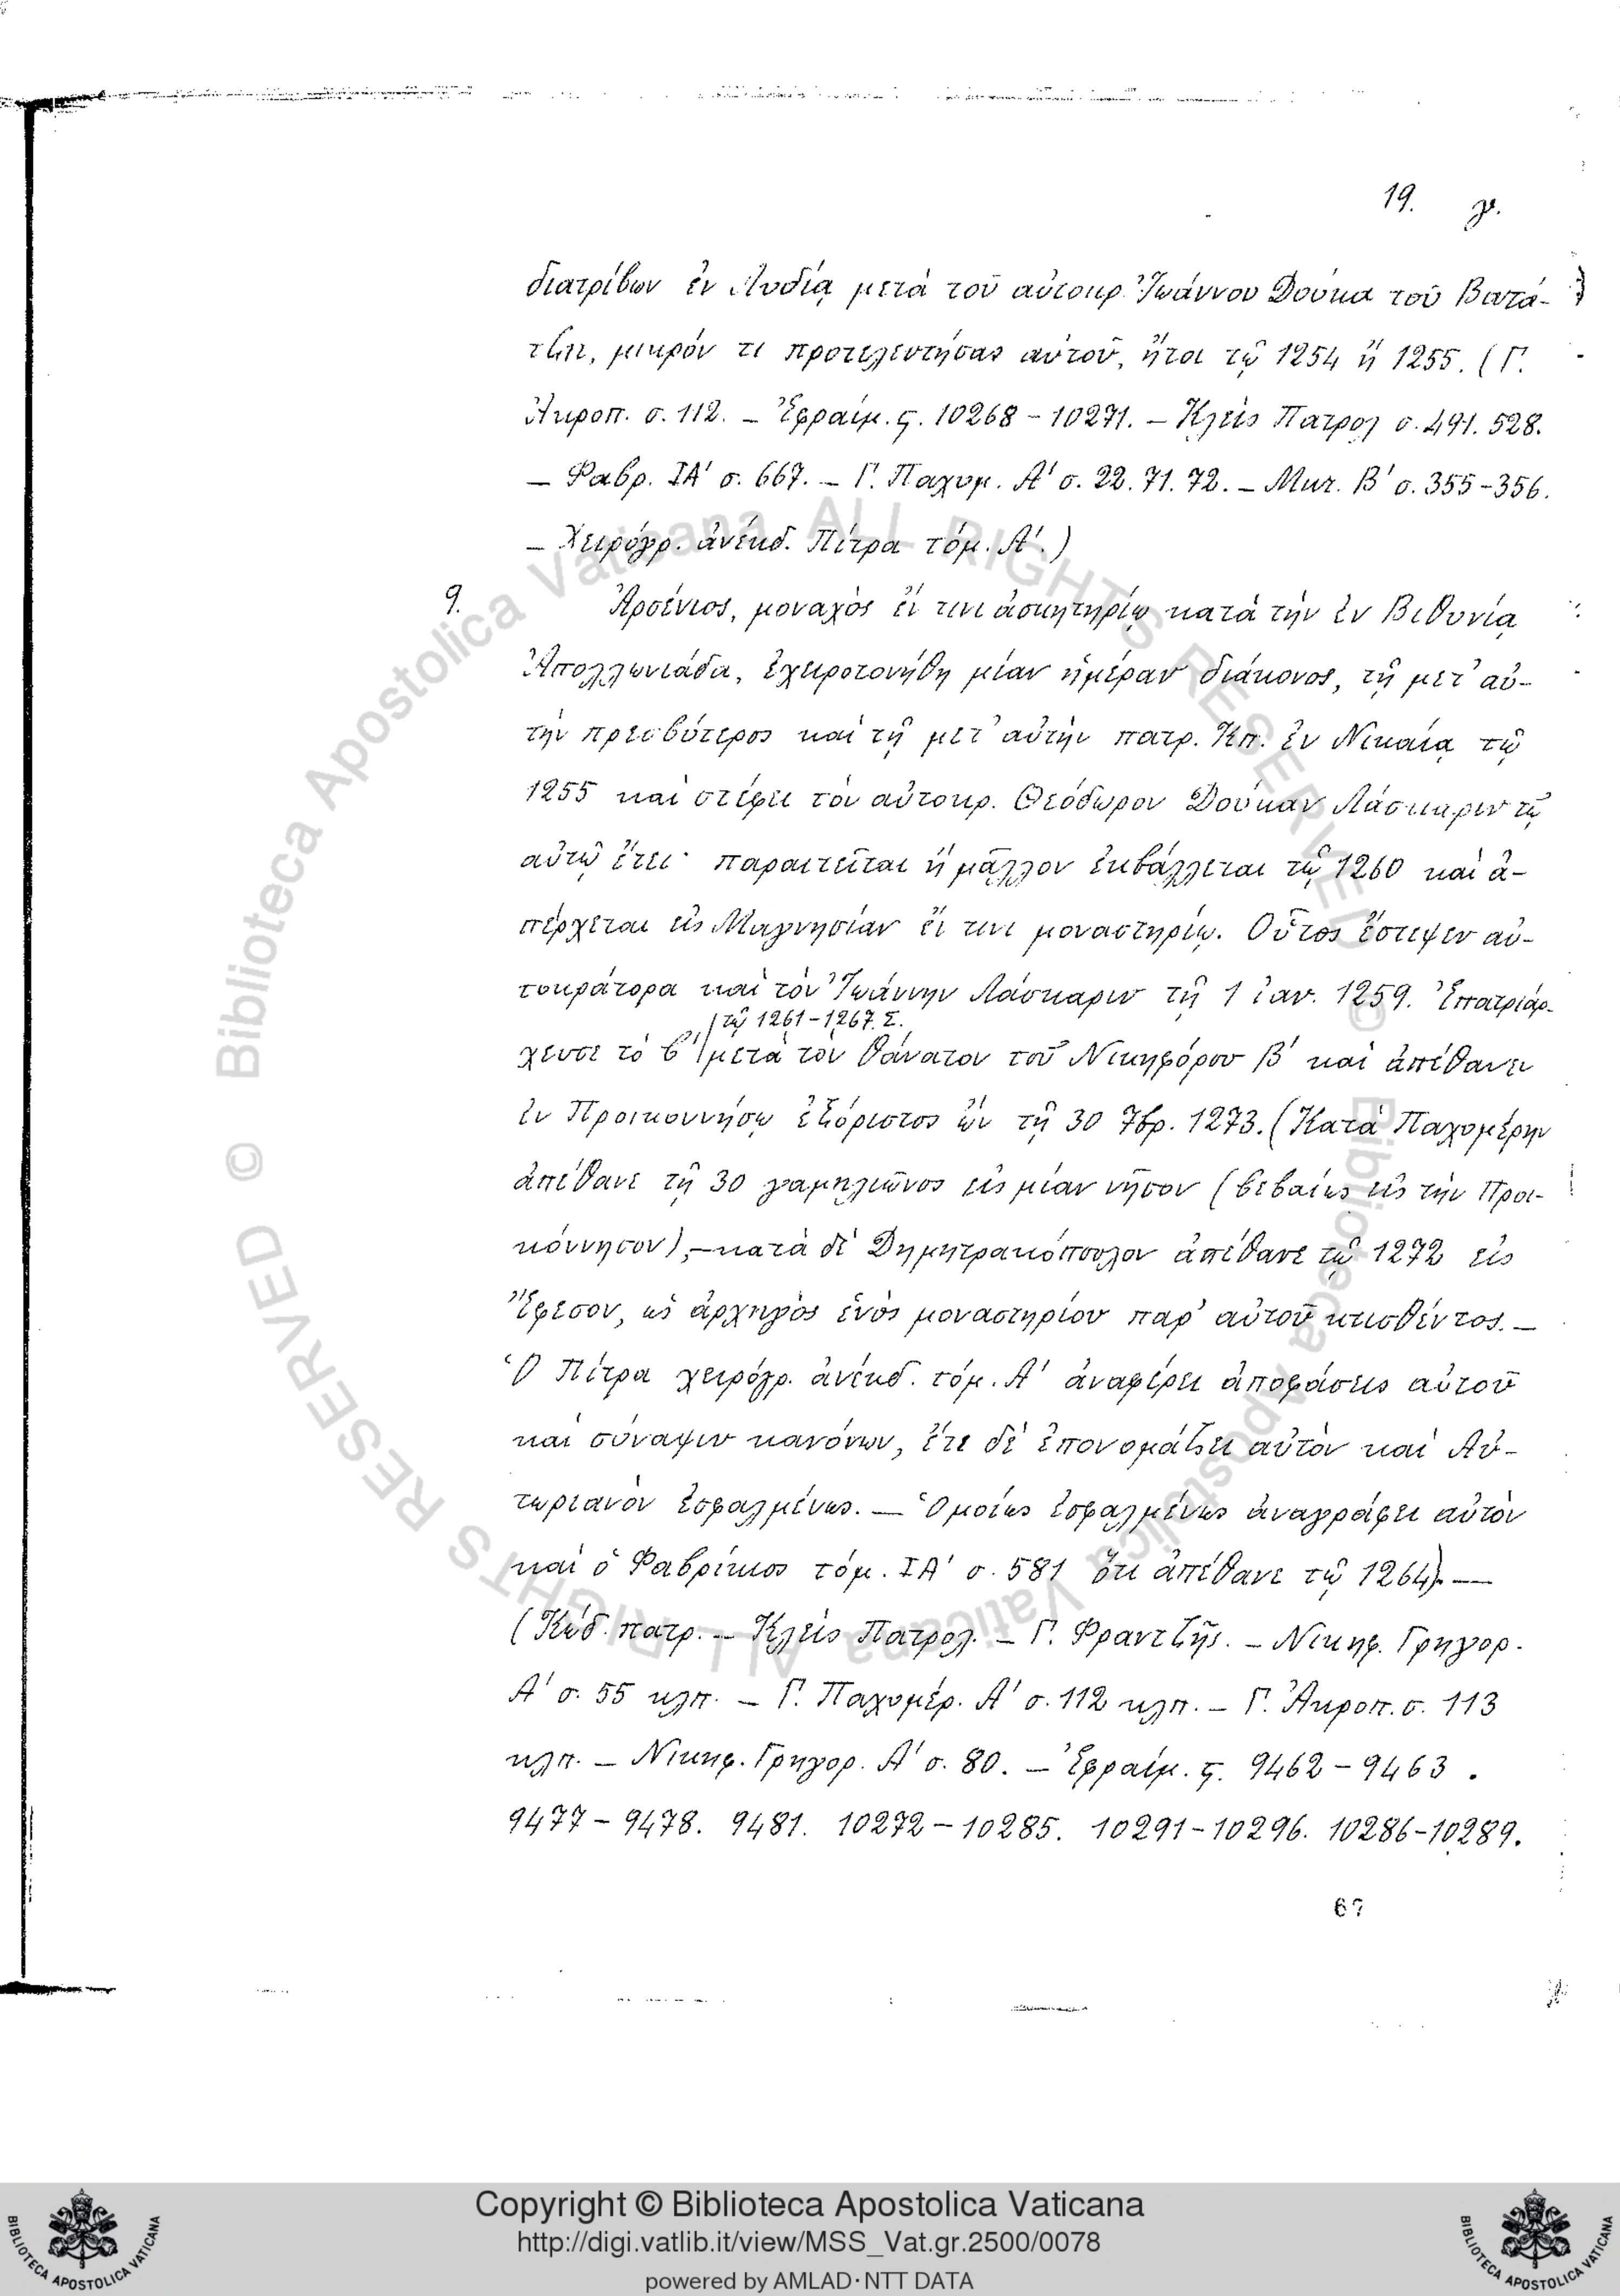 19. γ.
διατρίβων ἐν Λυδίᾳ μετὰ τοῦ αὐτοκρ. Ἰωάννου Δούκα τοῦ Βατά-
τζη, μικρόν τι προτελευτήσας αὐτοῦ, ἤτοι τῷ 1254 ἢ 1255. (Γ.
Ἀκροπ. σ. 112. – Ἐφραίμ. ς. 10268 – 10271. – Κλεὶς Πατρολ σ. 491. 528.
– Φαβρ. ΙΑ' σ. 667. – Γ. Παχυμ. Α' σ. 22. 71. 72. – Μικ. Β' σ. 355-356.
– Χειρόγρ. ἀνέκδ. Πίτρα τόμ. Α'.)
9. Ἀρσένιος, μοναχὸς ἔν τινι ἀσκητηρίῳ κατὰ τὴν ἐν Βιθυνίᾳ
Ἀπολλωνιάδα, ἐχειροτονήθη μίαν ἡμέραν διάκονος, τῇ μετ' αὐ-
τὴν πρεσβύτερος καὶ τῇ μετ' αὐτὴν πατρ. Κπ. ἐν Νικαίᾳ τῷ
1255 καὶ στέφει τὸν αὐτοκρ. Θεόδωρον Δούκαν Λάσκαριν τῷ
αὐτῷ ἔτει· παραιτεῖται ἢ μᾶλλον ἐκβάλλεται τῷ 1260 καὶ ἀ-
πέρχεται εἰς Μαγνησίαν ἔν τινι μοναστηρίῳ. Οὗτος ἔστεψεν αὐ-
τοκράτορα καὶ τὸν Ἰωάννην Λάσκαριν τῇ 1 ἰαν. 1259. Ἐπατριάρ-
τῷ 1261-1267. Σ.
χευσε τὸ β' μετὰ τὸν θάνατον τοῦ Νικηφόρου Β' καὶ ἀπέθανεν
ἐν Προικοννήσῳ ἐξόριστος ὢν τῇ 30 7βρ. 1273. (Κατὰ Παχυμέρην
ἀπέθανε τῇ 30 γαμηλιῶνος εἰς μίαν νῆσον (βεβαίως εἰς τὴν Προι-
κόννησον), – κατὰ δὲ Δημητρακόπουλον ἀπέθανε τῷ 1272 εἰς
Ἔφεσον, ὡς ἀρχηγὸς ἑνὸς μοναστηρίου παρ' αὐτοῦ κτισθέντος. –
Ὁ Πίτρα χειρόγρ. ἀνέκδ. τόμ. Α' ἀναφέρει ἀποφάσεις αὐτοῦ
καὶ σύναψιν κανόνων, ἔτι δὲ ἐπονομάζει αὐτὸν καὶ Αὐ-
τωριανὸν ἐσφαλμένως. – Ὁμοίως ἐσφαλμένως ἀναγράφει αὐτὸν
καὶ ὁ Φαβρίκιος τόμ. ΙΑ' σ. 581 ὅτι ἀπέθανε τῷ 1264). –
(Κώδ. πατρ. – Κλεὶς Πατρολ. – Γ. Φραντζῆς. – Νικηφ. Γρηγορ.
Α' σ. 55 κλπ. – Γ. Παχυμέρ. Α' σ. 112 κλπ. – Γ. Ἀκροπ. σ. 113
κλπ. – Νικηφ. Γρηγορ. Α' σ. 80. – Ἐφραίμ. ς. 9462 – 9463.
9477 – 9478. 9481. 10272 – 10285. 10291-10296. 10286-10289.
67
© Biblioteca Apostolica Vaticana ALL RIGHTS RESERVED
© Biblioteca Apostolica Vaticana ALL RIGHTS RESERVED
Copyright © Biblioteca Apostolica Vaticana
http://digi.vatlib.it/view/MSS_Vat.gr.2500/0078
powered by AMLAD·NTT DATA
BIBLIOTECA APOSTOLICA VATICANA
BIBLIOTECA APOSTOLICA VATICANA